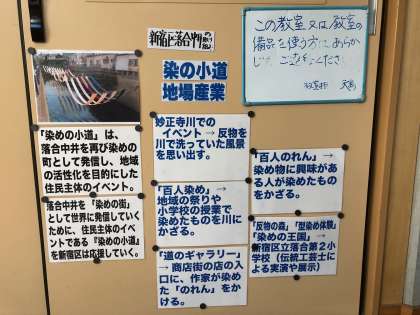 新宿区落合中井
染の小道
地場産業
この教室又は教室の
備品を使う方は、あらか
「染めの小道」は、
落合中井を再び染めの
町として発信し、地域
の活性化を目的にした
住民主体のイベント。
落合中井を「染めの街」
として世界に発信していく
ために、住民主体のイベ
ントである『染めの小道』
を新宿区は応援していく。
妙正寺川での
イベント → 反物を
川で洗っていた風景
を思い出す。
「百人染め」 →
地域の祭りや
小学校の授業で
染めたものを川に
かざる。
「道のギャラリー」
→ 商店街の店の入
口に、作家が染め
た「のれん」をか
ける。
「百人のれん」 →
染め物に興味があ
る人が染めたもの
をかざる。
「反物の森」「型染め体験」
「染めの王国」 →
新宿区立落合第2小
学校（伝統工芸士に
よる実演や展示）